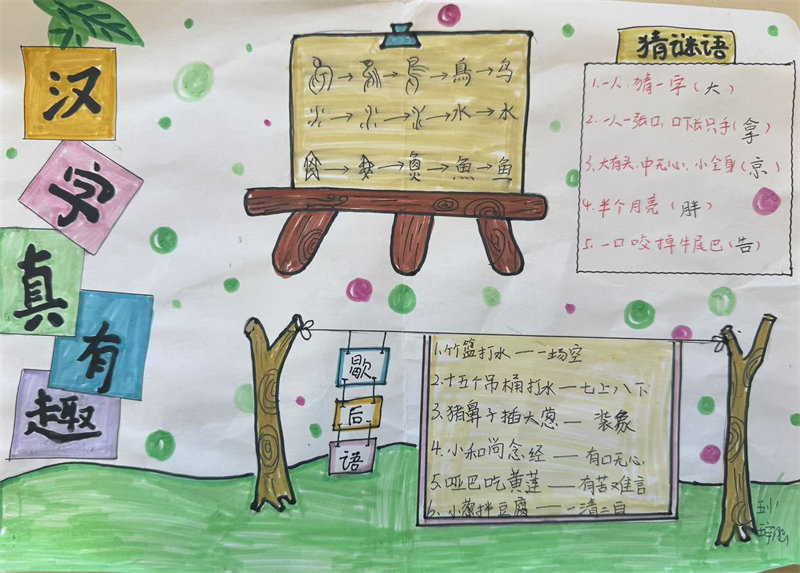 汉
字
真
有
趣
鳥→鸟
水→水
魚→鱼
猜谜语
1.一人.猜一字(大)
2.一人一张口,口下长只手(拿)
3.大有头,中无心,小全身(京)
4.半个月亮(胖)
5.一口咬掉牛尾巴(告)
歇
后
语
1.竹篮打水——一场空
2.十五个吊桶打水—七上八下
3.猪鼻子插大葱—装象
4.小和尚念经——有口无心
5.哑巴吃黄莲——有苦难言
6.小葱拌豆腐——一清二白